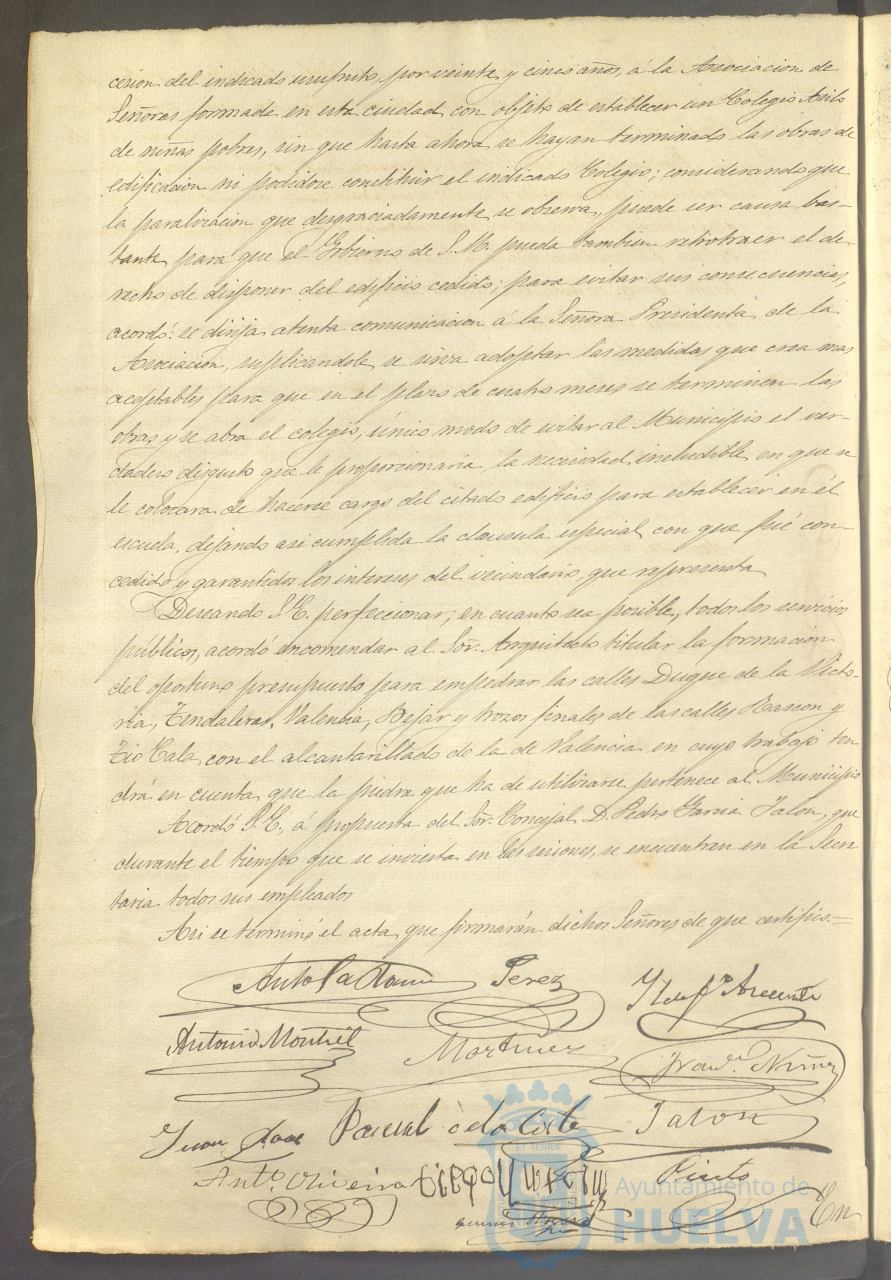 cesion del indicado usufruto, por veinte y cinco años, á la Asociacion de
Señoras formada en esta ciudad con objeto de establecer un Colegio Asilo
de niñas pobres, sin que hasta ahora se hayan terminado las obras de
edificacion ni podidose constituir el indicado Colegio; considerando que
la paralizacion que desgraciadamente se observa, puede ser causa bas-
tante para que el Gobierno de S. M. pueda tambien retrotraer el de-
recho de disponer del edificio cedido; para evitar sus consecuencias,
acordó: se dirija atenta comunicacion á la Señora Presidenta de la
Asociacion, suplicandole se sirva adoptar las medidas que crea mas
aceptables para que en el plazo de cuatro meses se terminen las
obras y se abra el colegio, único modo de evitar al Municipio el ver-
dadero disgusto que le proporcionaria, la necesidad ineludible en que se
le colocara de hacerse cargo del citado edificio para establecer en él
escuela, dejando asi cumplida la clausula especial con que fué con-
cedido y garantidos los intereses del vecindario, que representa
Deseando S. E. perfeccionar, en cuanto sea posible, todos los servicios
publicos, acordó encomendar al Sor. Arquitecto titular la formacion
del oportuno presupuesto para empedrar las calles Duque de la Victo-
ria, Tendaleras, Valencia, Bejar y trozos finales de las calles Rascon y
Tio Cala, con el alcantarillado de la de Valencia en cuyo trabajo ten
drá en cuenta que la piedra que ha de utilizarse pertenece al Municipio
Acordó S. E., á propuesta del Sor. Concejal D. Pedro Garcia Jalon, que
durante el tiempo que se invierta en las sesiones, se encuentran en la Secre
taria todos sus empleados
Asi se terminó el acta, que firmarán dichos Señores de que certifico.=
Perez
Antonio Montiel Martinez Nuñez
Juan José Pascual de la Corte Jalon
Anto. Oliveira Pinto
ET TERRÆ
Ayuntamiento de
HUELVA
En